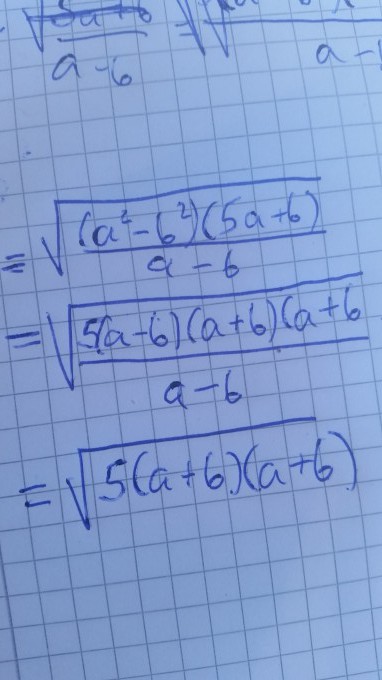 a - 6
a -
= √((a² - 6²)(5a + 6) / a - 6)
= √(5(a - 6)(a + 6)(a + 6 / a - 6)
= √5(a + 6)(a + 6)